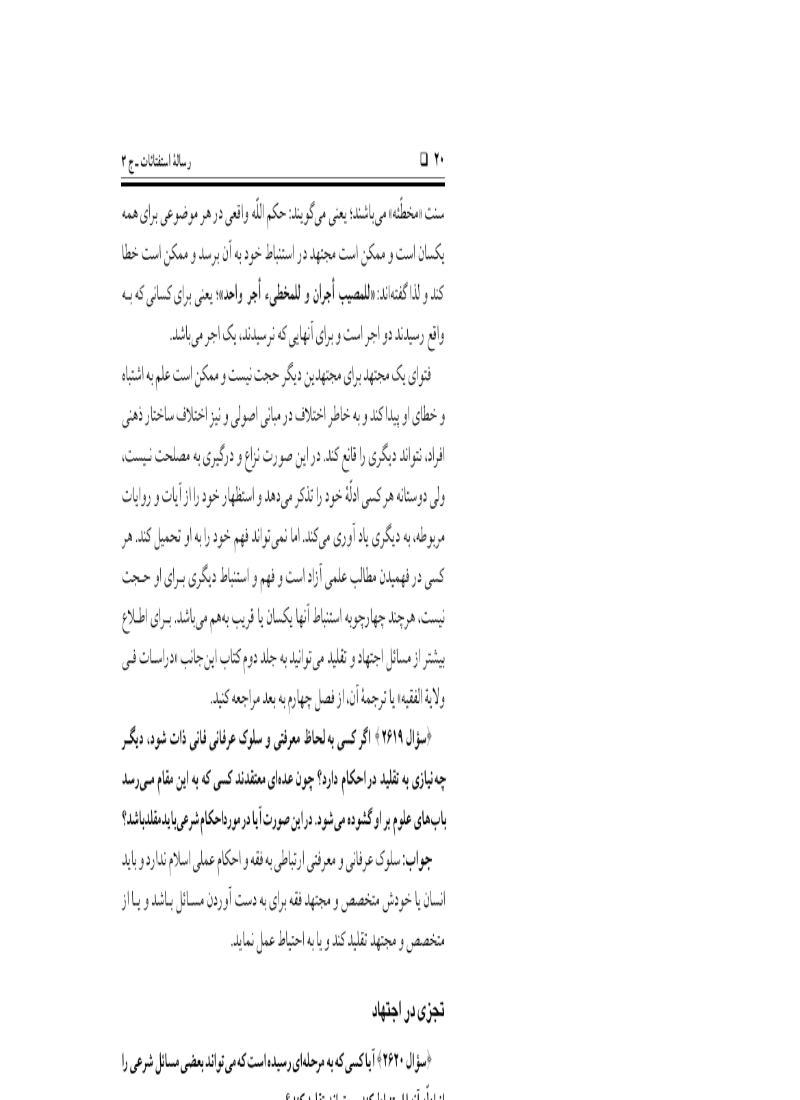 ۲۰ ❑ رسالهٔ استفتائات ـ ج ۳
سنت «مخطّئه» می‌باشند؛ یعنی می‌گویند: حکم اللّه واقعی در هر موضوعی برای همه
یکسان است و ممکن است مجتهد در استنباط خود به آن برسد و ممکن است خطا
کند و لذا گفته‌اند: «للمصیب أجران و للمخطیء أجر واحد»؛ یعنی برای کسانی که به
واقع رسیدند دو اجر است و برای آنهایی که نرسیدند، یک اجر می‌باشد.
فتوای یک مجتهد برای مجتهدین دیگر حجت نیست و ممکن است علم به اشتباه
و خطای او پیدا کند و به خاطر اختلاف در مبانی اصولی و نیز اختلاف ساختار ذهنی
افراد، نتواند دیگری را قانع کند. در این صورت نزاع و درگیری به مصلحت نیست،
ولی دوستانه هر کسی ادلّهٔ خود را تذکر می‌دهد و استظهار خود را از آیات و روایات
مربوطه، به دیگری یاد آوری می‌کند. اما نمی‌تواند فهم خود را به او تحمیل کند. هر
کسی در فهمیدن مطالب علمی آزاد است و فهم و استنباط دیگری برای او حجت
نیست، هرچند چهارچوبه استنباط آنها یکسان یا قریب به‌هم می‌باشد. برای اطلاع
بیشتر از مسائل اجتهاد و تقلید می‌توانید به جلد دوم کتاب این‌جانب «دراسات فی
ولایة الفقیه» یا ترجمهٔ آن، از فصل چهارم به بعد مراجعه کنید.
﴿سؤال ۲۶۱۹﴾ اگر کسی به لحاظ معرفتی و سلوک عرفانی فانی ذات شود، دیگر
چه نیازی به تقلید در احکام دارد؟ چون عده‌ای معتقدند کسی که به این مقام می‌رسد
باب‌های علوم بر او گشوده می‌شود. در این صورت آیا در مورد احکام شرعی باید مقلد باشد؟
جواب: سلوک عرفانی و معرفتی ارتباطی به فقه و احکام عملی اسلام ندارد و باید
انسان یا خودش متخصص و مجتهد فقه برای به دست آوردن مسائل باشد و یا از
متخصص و مجتهد تقلید کند و یا به احتیاط عمل نماید.
تجزی در اجتهاد
﴿سؤال ۲۶۲۰﴾ آیا کسی که به مرحله‌ای رسیده است که می‌تواند بعضی مسائل شرعی را